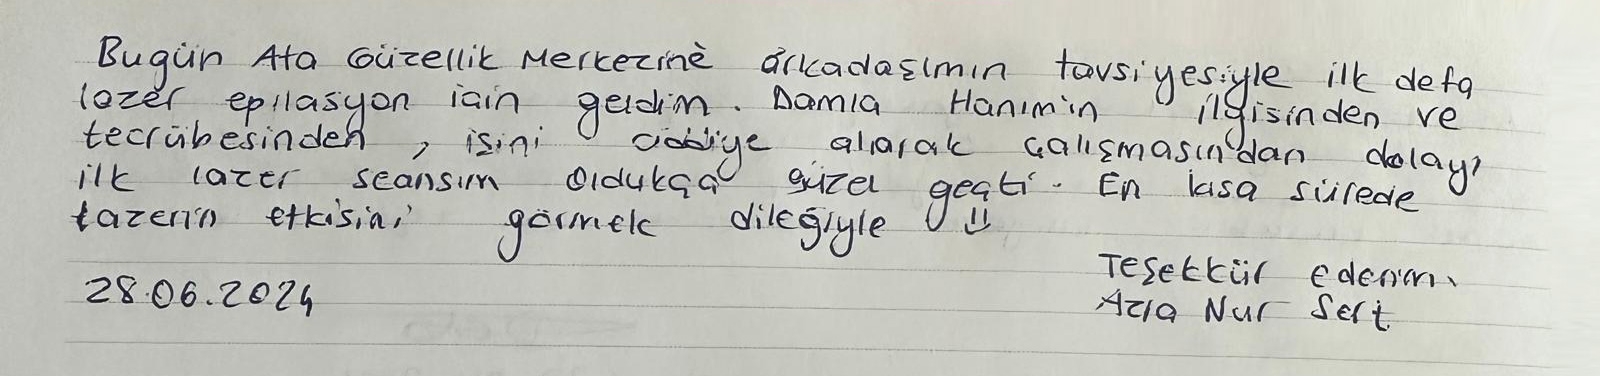 Bugün Ata Güzellik Merkezine arkadaşımın tavsiyesiyle ilk defa
lazer epilasyon için geldim. Damla Hanımın ilgisinden ve
tecrübesinden, işini ciddiye alarak çalışmasından dolayı
ilk lazer seansım oldukça güzel geçti. En kısa sürede
lazerin etkisini görmek dileğiyle :)
Teşekkür ederim.
28.06.2024
Azra Nur Sert